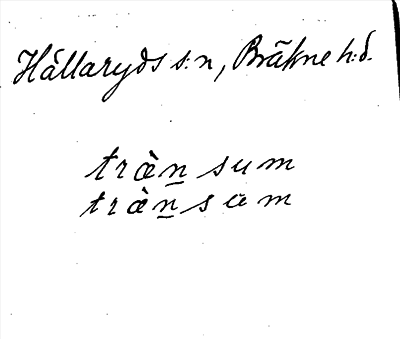 Hällaryds s:n, Bräkne h:d.
træ̀n̲ sum
trà̈n̲ sam